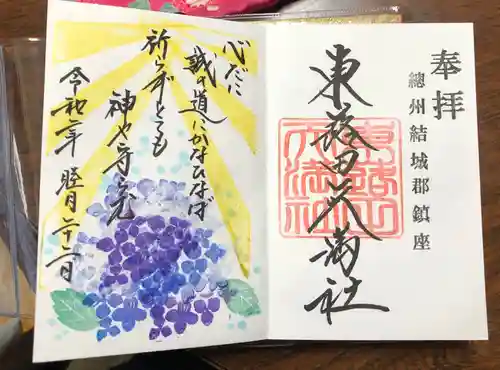 奉拝
總州結城郡鎮座
東蕗田天満社
心だに
誠の道にかなひなば
祈らずとても
神や守らむ
令和二年 睦月二十二日